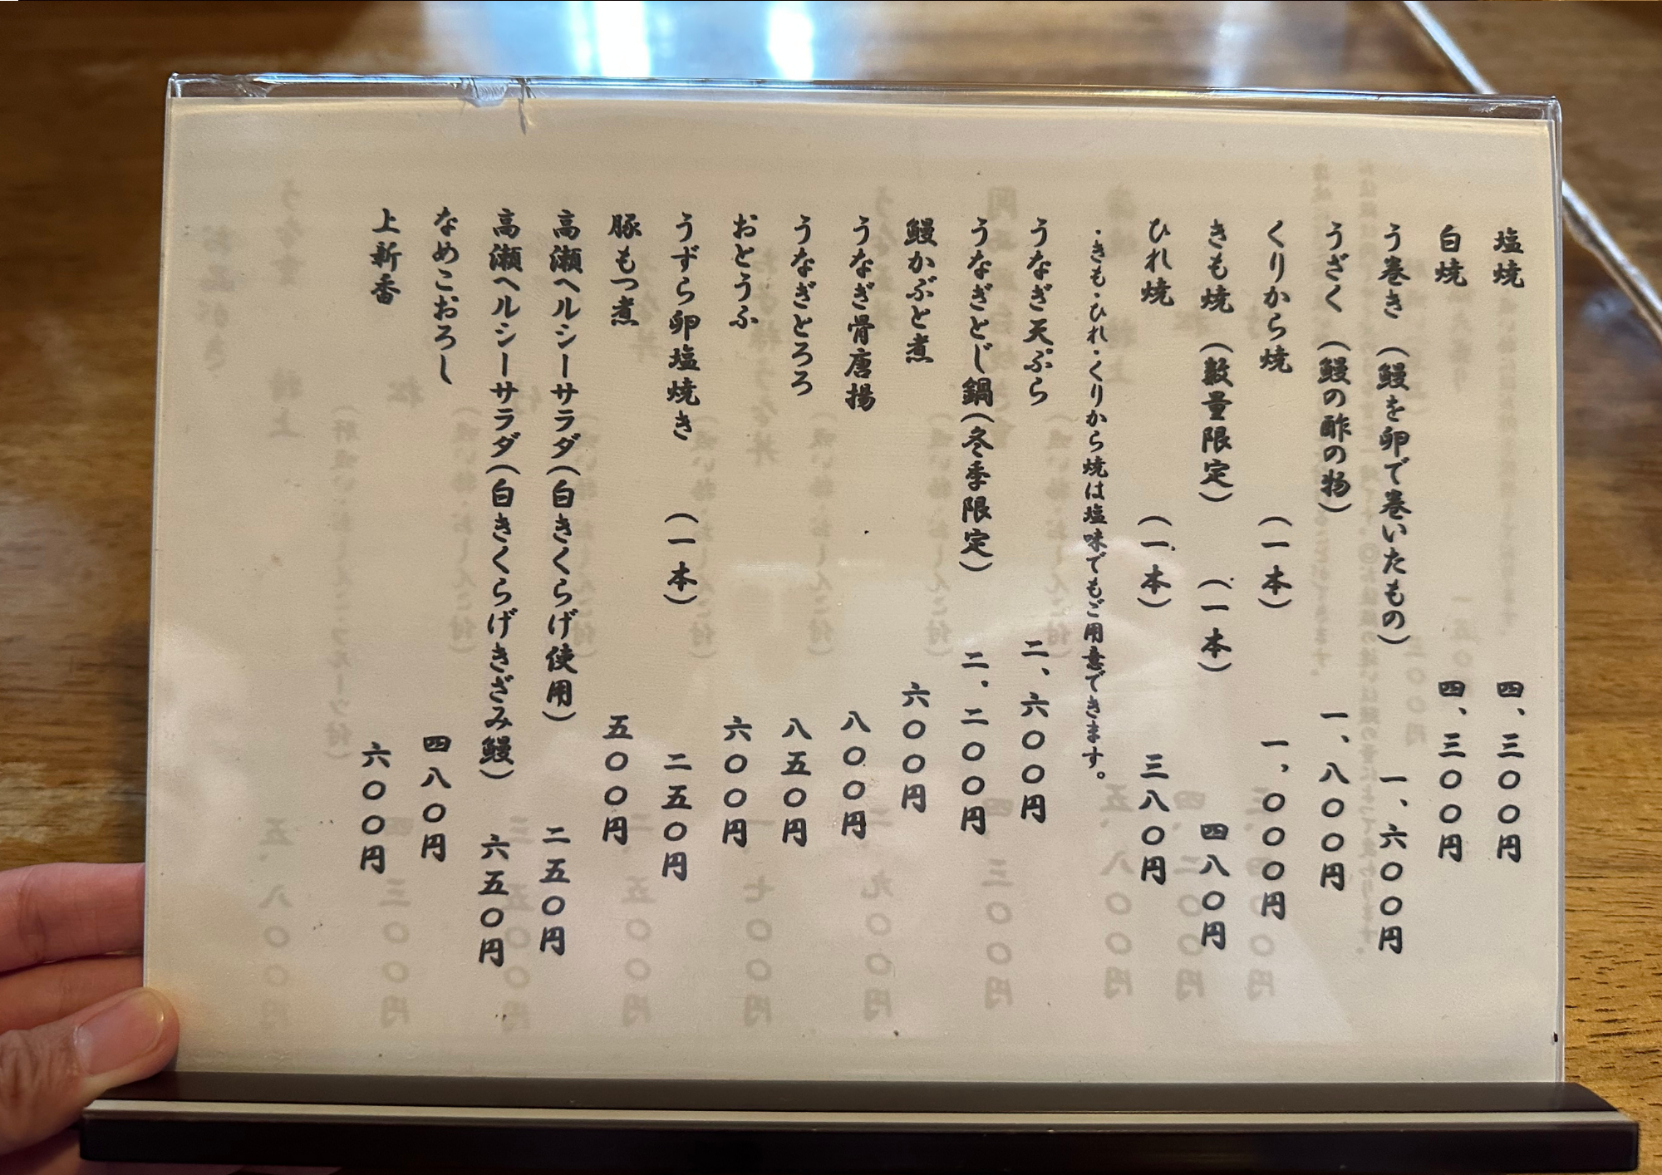 塩焼 四、三〇〇円
白焼 四、三〇〇円
う巻き（鰻を卵で巻いたもの） 一、六〇〇円
うざく（鰻の酢の物） 一、八〇〇円
くりから焼 （一本） 一、〇〇〇円
きも焼（数量限定） （一本） 四八〇円
ひれ焼 （一本） 三八〇円
・きも・ひれ・くりから焼は塩味でもご用意できます。
うなぎ天ぷら 二、六〇〇円
うなぎとじ鍋（冬季限定） 二、二〇〇〇円
鰻かぶと煮 六〇〇円
うなぎ骨唐揚 八〇〇円
うなぎとろろ 八五〇円
おとうふ 六〇〇円
うずら卵塩焼き （一本） 二五〇円
豚もつ煮 五〇〇円
高瀬ヘルシーサラダ（白きくらげ使用） 二五〇円
高瀬ヘルシーサラダ（白きくらげきざみ鰻） 六五〇円
なめこおろし 四八〇円
上新香 六〇〇円